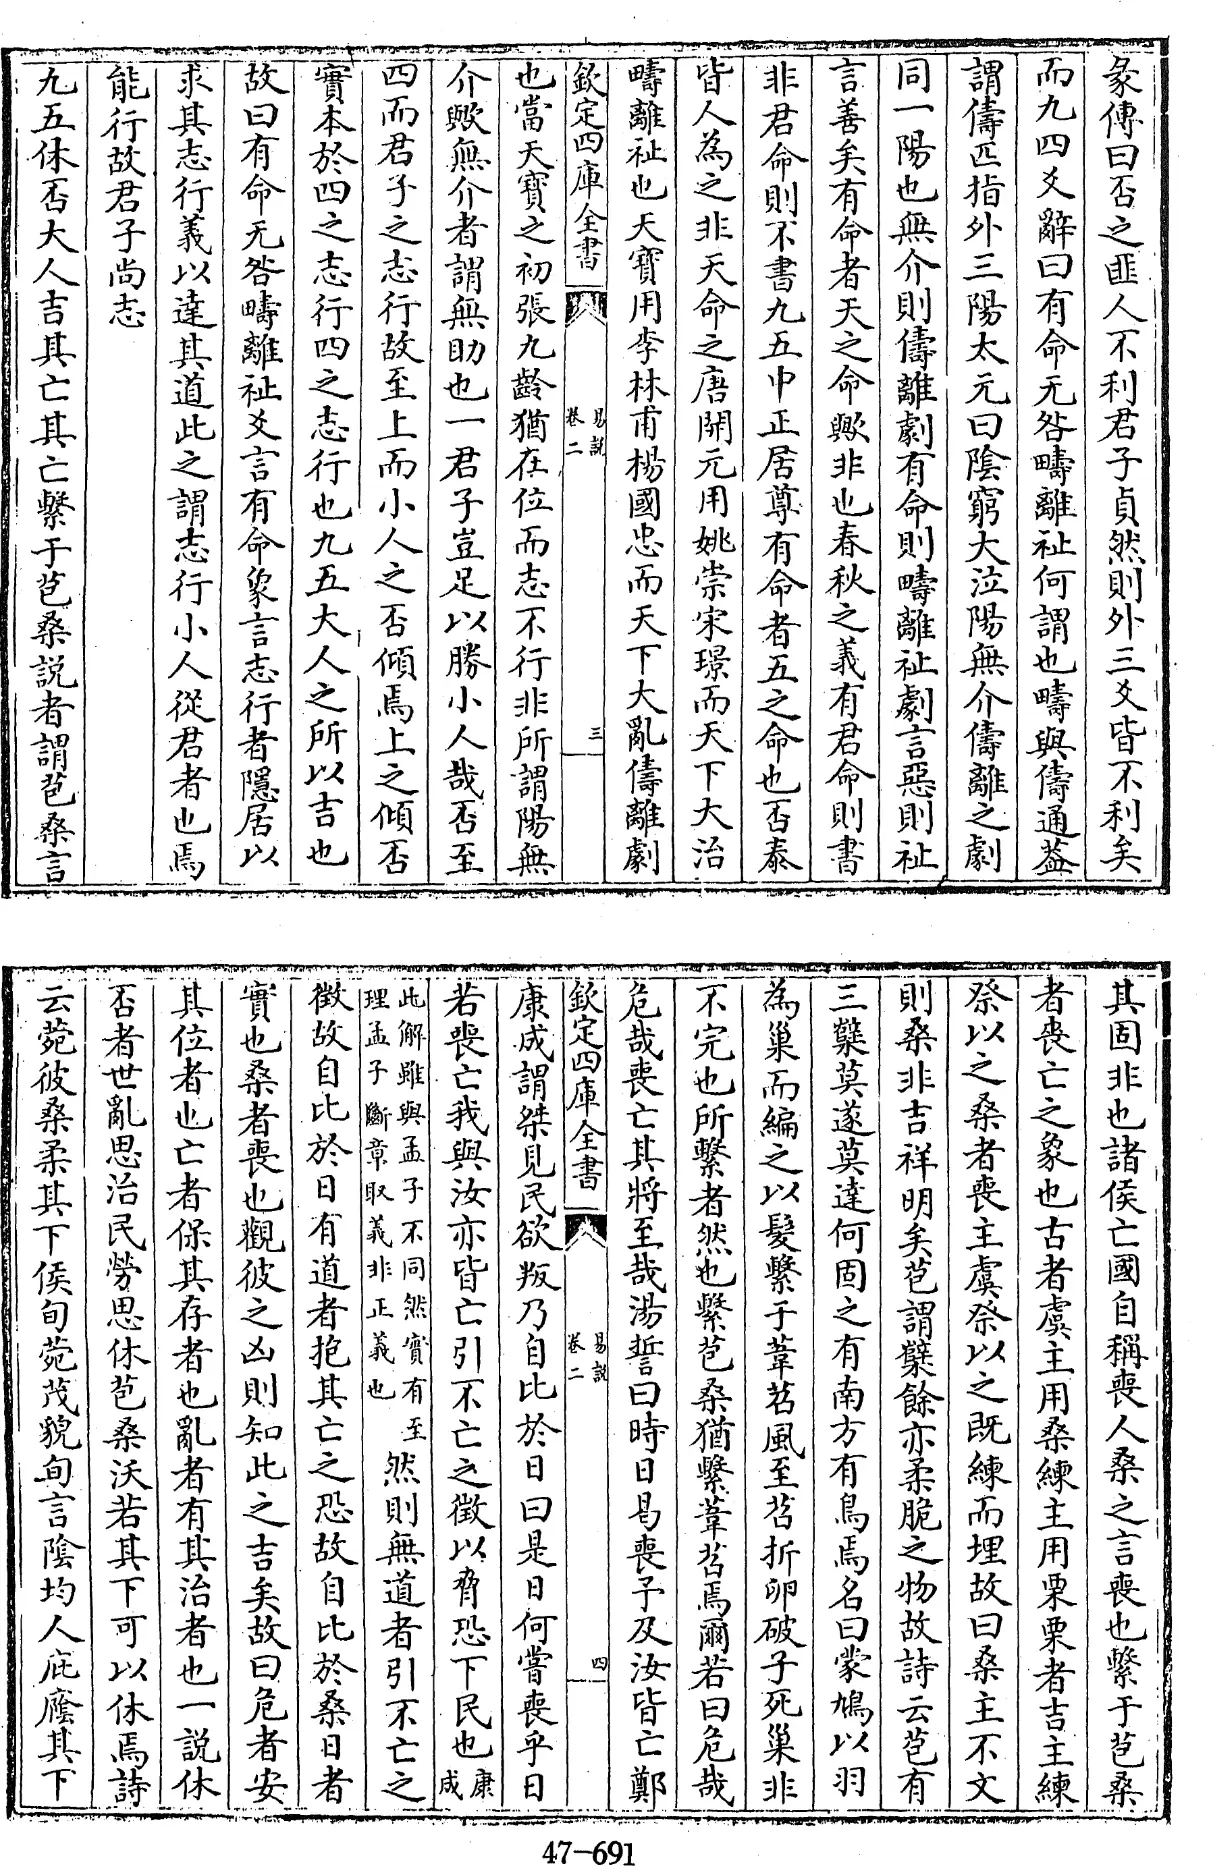 彖傳曰否之匪人不利君子貞然則外三爻皆不利矣
而九四爻辭曰有命无咎疇離祉何謂也疇與儔通葢
謂儔匹指外三陽太元曰陰窮大泣陽無介儔離之劇
同一陽也無介則儔離劇有命則疇離祉劇言惡則祉
言善矣有命者天之命歟非也春秋之義有君命則書
非君命則不書九五中正居尊有命者五之命也否泰
皆人為之非天命之唐開元用姚崇宋璟而天下大治
疇離祉也天寳用李林甫楊國忠而天下大亂儔離劇
欽定四庫全書
易説
卷二
三
也當天寳之初張九齡猶在位而志不行非所謂陽無
介歟無介者謂無助也一君子豈足以勝小人哉否至
四而君子之志行故至上而小人之否傾焉上之傾否
實本於四之志行四之志行也九五大人之所以吉也
故曰有命无咎疇離祉爻言有命象言志行者隱居以
求其志行義以達其道此之謂志行小人從君者也焉
能行故君子尚志
九五休否大人吉其亡其亡繫于苞桑説者謂苞桑言
其固非也諸侯亡國自稱喪人桑之言喪也繫于苞桑
者喪亡之象也古者虞主用桑練主用栗栗者吉主練
祭以之桑者喪主虞祭以之既練而埋故曰桑主不文
則桑非吉祥明矣苞謂糵餘亦柔脆之物故詩云苞有
三糵莫遂莫達何固之有南方有鳥焉名曰蒙鳩以羽
為巢而編之以髮繫于葦苕風至苕折卵破子死巢非
不完也所繫者然也繫苞桑猶繫葦苕焉爾若曰危哉
危哉喪亡其將至哉湯誓曰時日曷喪予及汝皆亡鄭
欽定四庫全書
易説
卷二
四
康成謂桀見民欲叛乃自比於日曰是日何嘗喪乎日
若喪亡我與汝亦皆亡引不亡之徵以脅恐下民也康成
此解雖與孟子不同然實有至理孟子斷章取義非正義也然則無道者引不亡之
徵故自比於日有道者抱其亡之恐故自比於桑日者
實也桑者喪也觀彼之凶則知此之吉矣故曰危者安
其位者也亡者保其存者也亂者有其治者也一説休
否者世亂思治民勞思休苞桑沃若其下可以休焉詩
云菀彼桑柔其下侯旬菀茂貌旬言陰均人庇廕其下
47-691